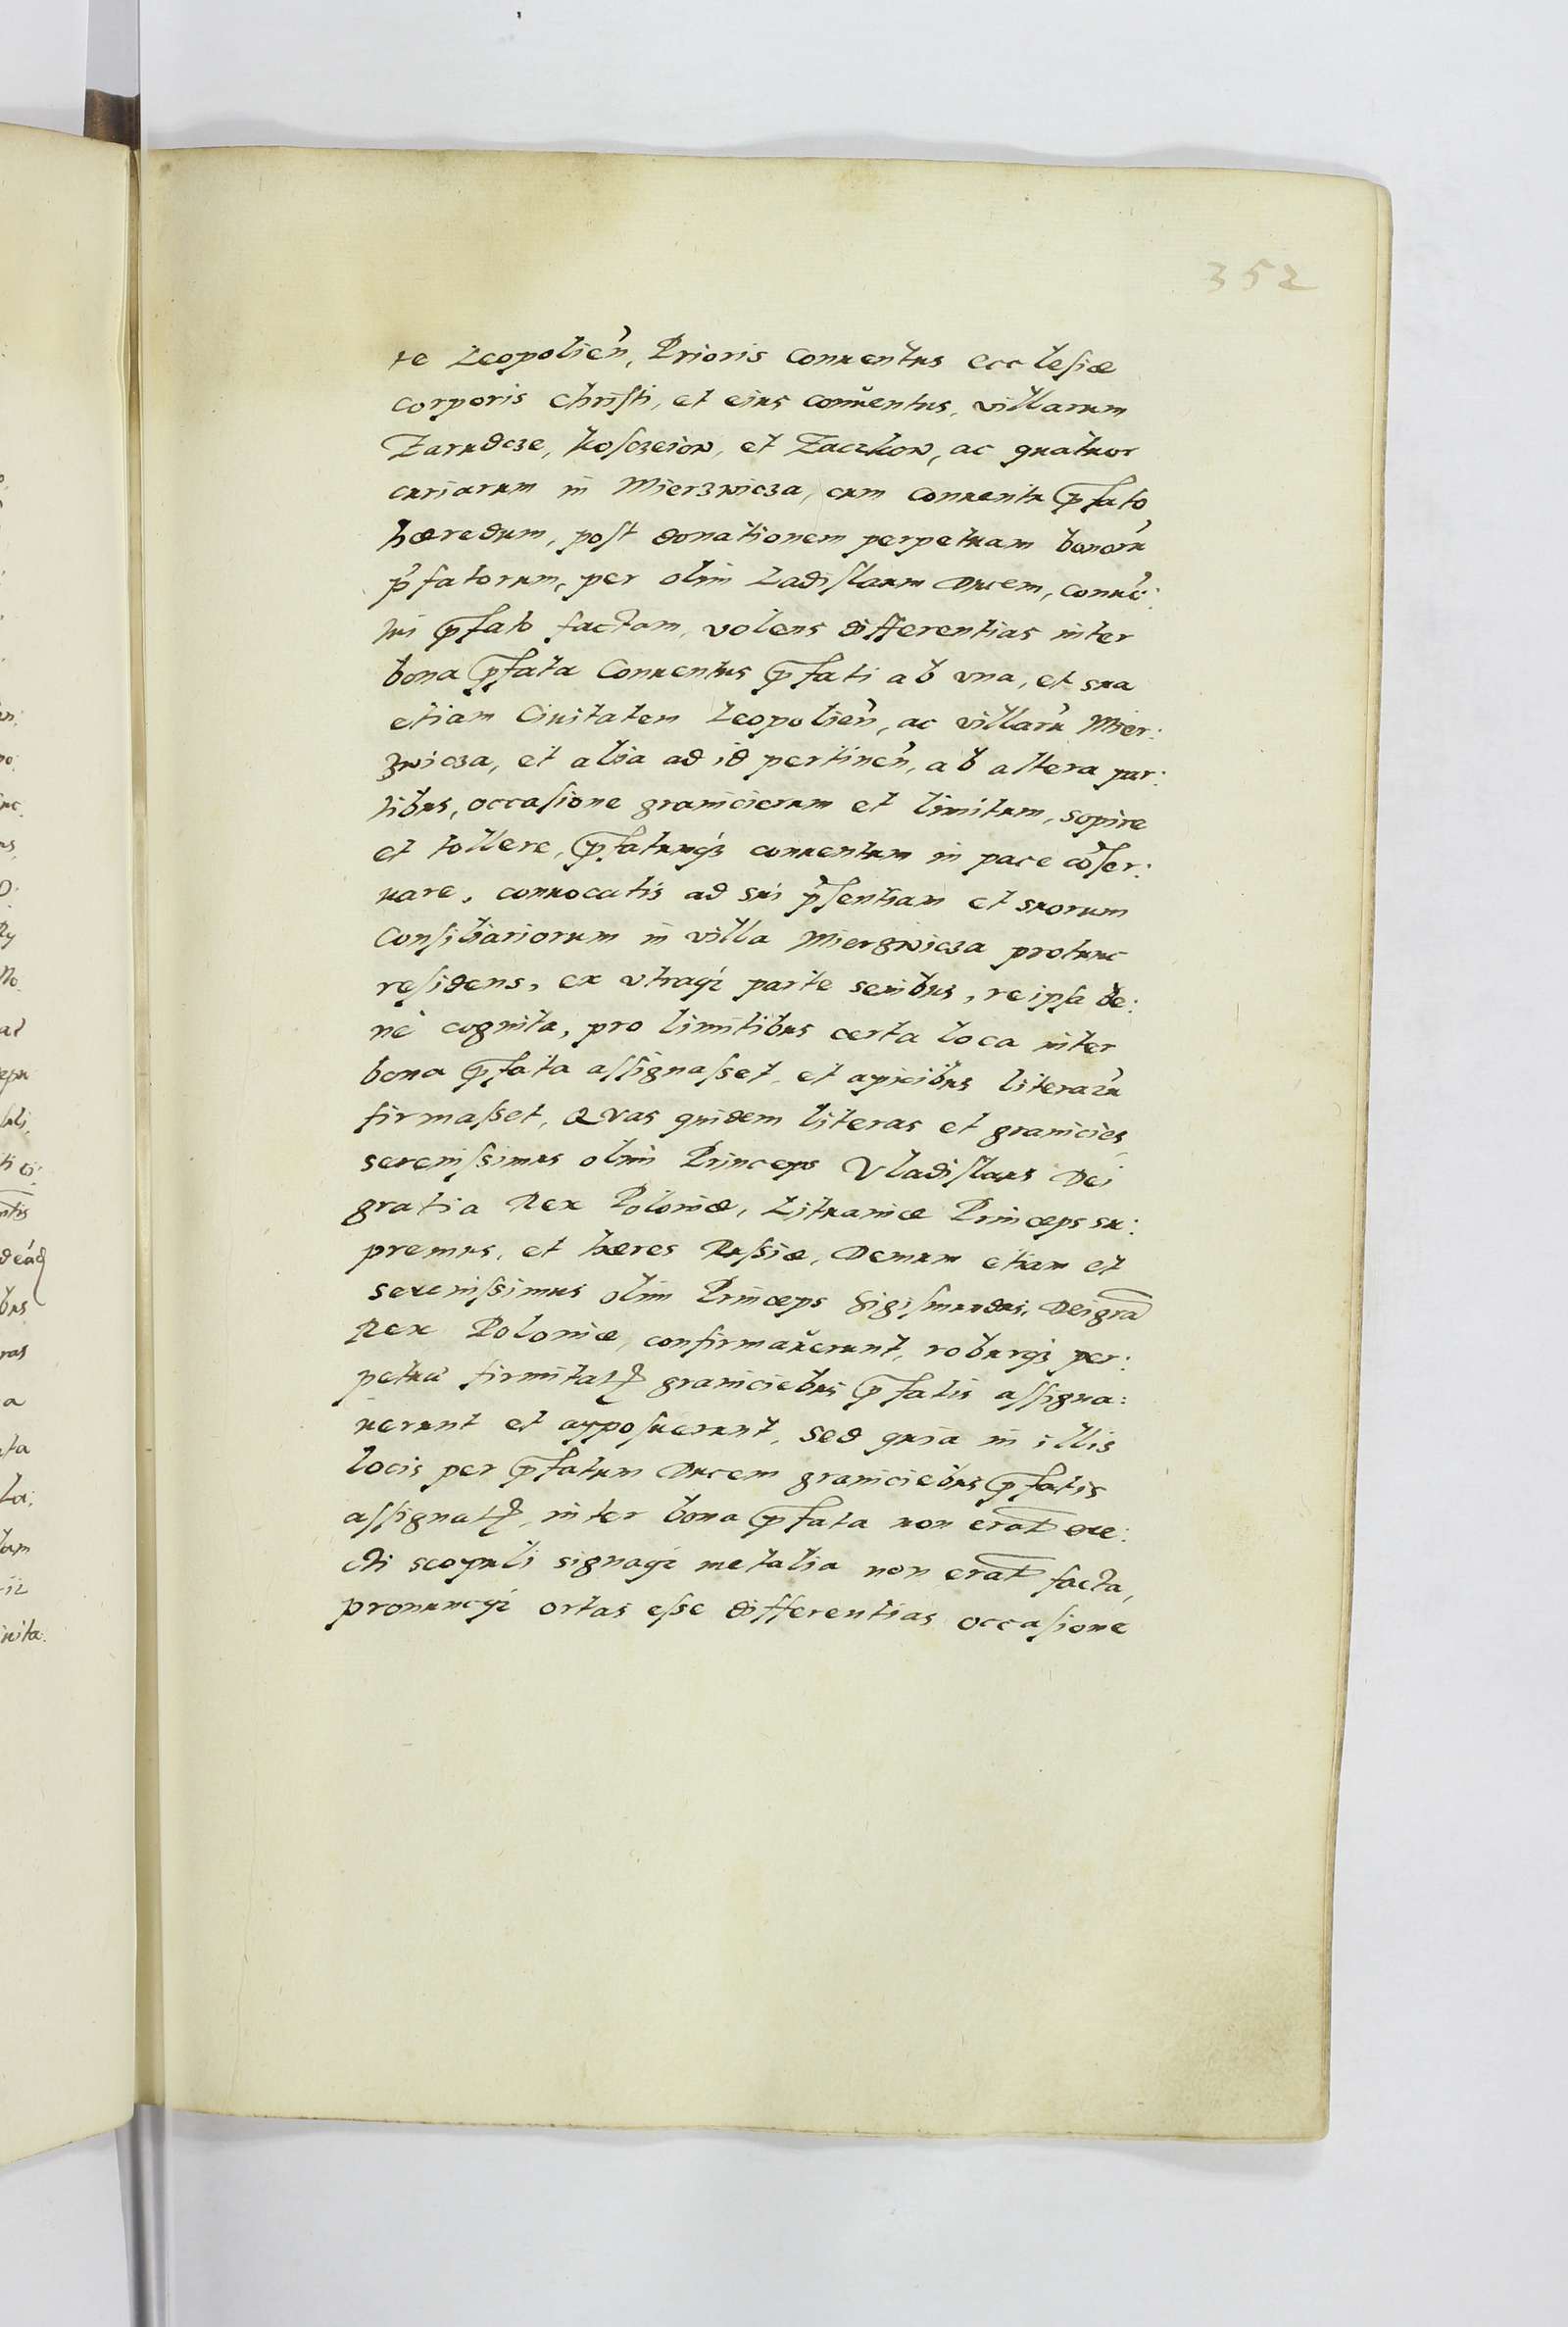 352
te Leopolień, Prioris Conuentus ecclesiæ
corporis Christi, et eius conuentus, villarum
Zarudcze, Kosczeiow, et Zaczkow, ac quatuor
curiarum in Mierzwicza, cum Conuentu p̃fato
hæredum, post donationem perpetuam bonorũ
p̃fatorum, per olim Ladislaum Ducem, conuẽ:
tui p̃fato factam, volens differentias inter
bona p̃fata Conuentus p̃fati ab vna, et sua
etiam Ciuitatem Leopolień, ac villarũ Mier:
zwicza, et alia ad id pertineń, ab altera par:
tibus, occasione granicierum et limitum, sopire
et tollere, p̃fatumq; conuentum in pace cõser:
uare, conuocatis ad sui p̃sentiam et suorum
Consiliariorum in villa Mierzwicza protunc
residens, ex vtraq; parte senibus, re ipsa be:
nè cognita, pro limitibus certa loca inter
bona p̃fata assignasset, et apicibus literarũ
firmasset, Quas quidem literas et granicies,
serenissimus olim Princeps Vladislaus Dei
gratia Rex Poloniæ, Lituaniæ Princeps su:
premus, et hæres Russiæ, Demum etiam et
serenissimus olim Princeps Sigismundus, Dei grã
Rex Poloniæ, confirmauerunt, roburq; per:
petuæ firmitatꝭ graniciebus p̃fatis assigna:
uerunt et apposuerunt, sed quia in illis
locis per p̃fatum Ducem graniciebus p̃fatis
assignatꝭ, inter bona p̃fata non erãt ere:
cti scopuli signaq; metalia non erãt facta,
pronuncq; ortas esse differentias occasione